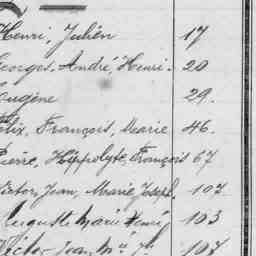 Henri, Julien 17
Georges, André, Henri. 20
Eugène 29.
Félix, François, Marie 46.
Pierre, Hippolyte, François 67
Victor, Jean, Marie Joseph. 107
Auguste Marie Henri 103
Victor Jean, Mie Jh 107